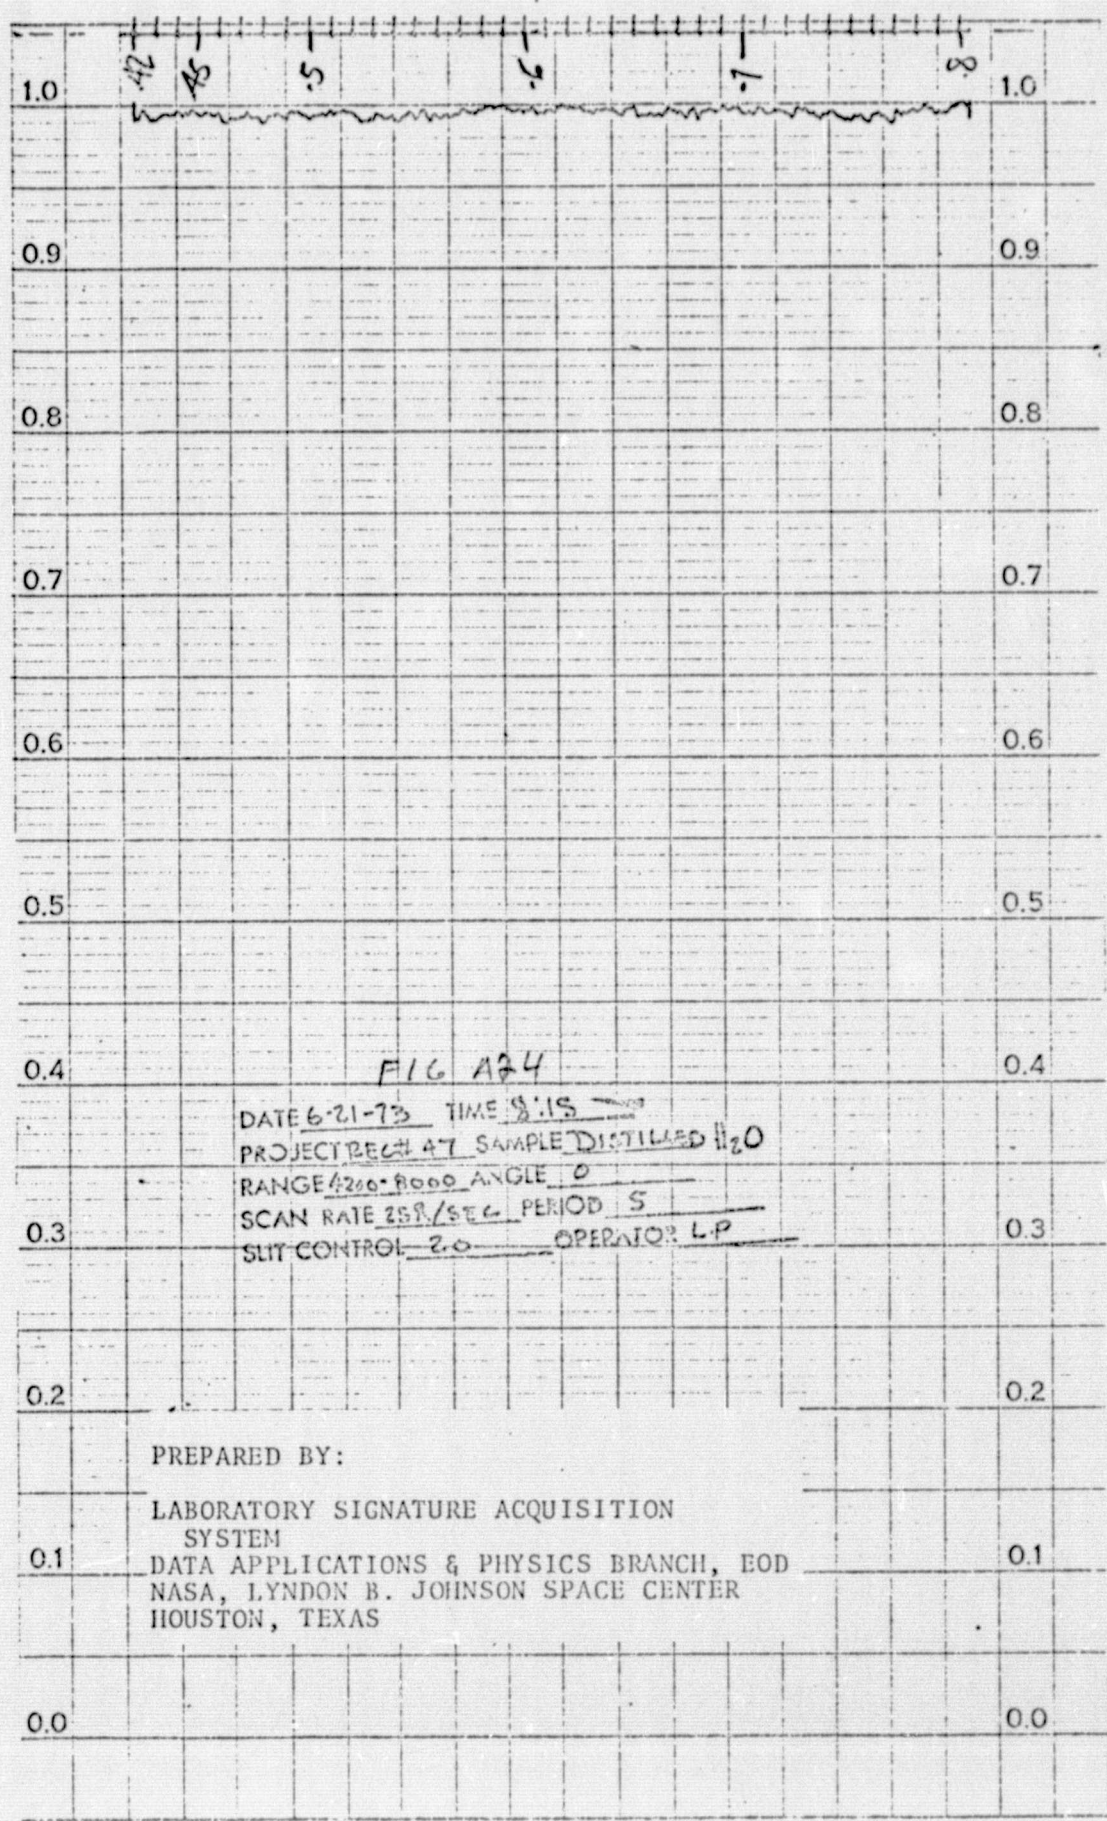 .42 .45 .5 .6 .7 .8
1.0 1.0
0.9 0.9
0.8 0.8
0.7 0.7
0.6 0.6
0.5 0.5
0.4 0.4
FIG A24
DATE 6-21-73 TIME 8:15
PROJECT REC# A7 SAMPLE DISTILLED H₂O
RANGE 4200-8000 ANGLE 0
SCAN RATE 25Å/SEC PERIOD 5
0.3 0.3
SLIT CONTROL 2.0 OPERATOR L.P
0.2 0.2
PREPARED BY:
LABORATORY SIGNATURE ACQUISITION
SYSTEM
0.1 0.1
DATA APPLICATIONS & PHYSICS BRANCH, EOD
NASA, LYNDON B. JOHNSON SPACE CENTER
HOUSTON, TEXAS
0.0 0.0